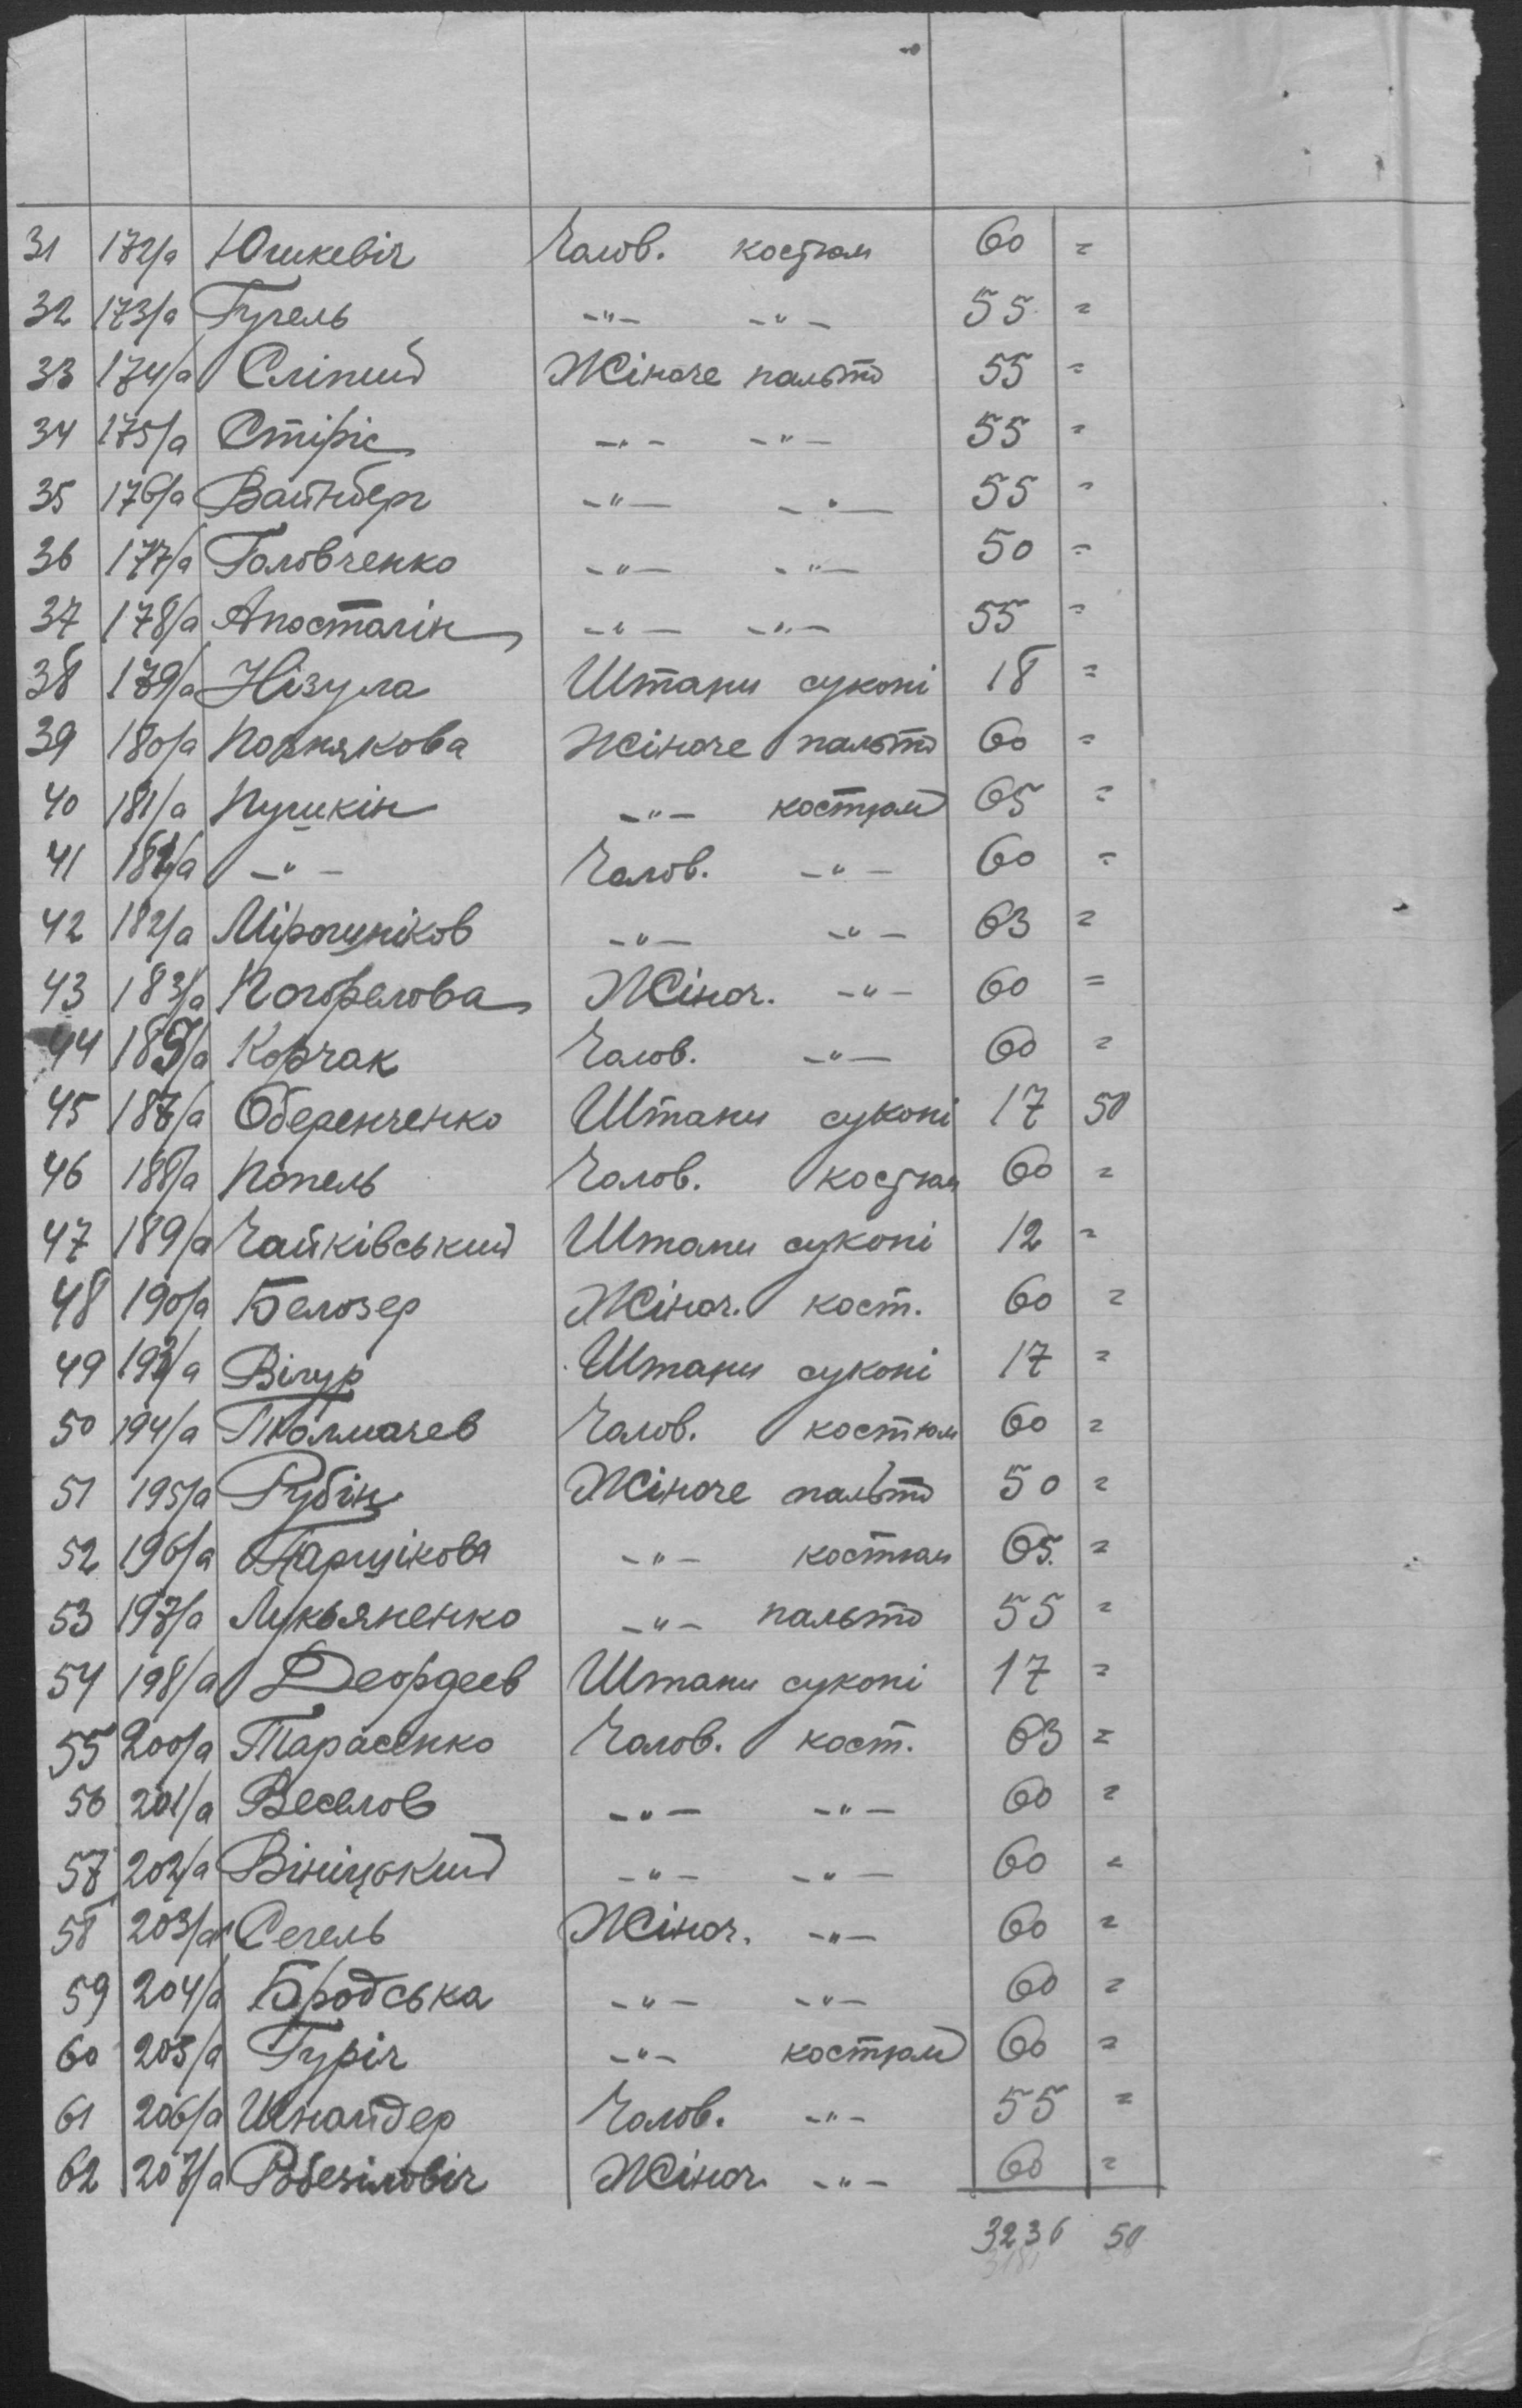 31 172/а Юшкевіч Чолов. костюм 60 =
32 173/а Гугель -"- -"- 55 =
33 174/а Сліпий Жіноче пальто 55 =
34 175/а Стіріс -"- -"- 55 =
35 176/а Вайнберг -"- -"- 55 =
36 177/а Головченко -"- -"- 50 =
37 178/а Апосталін -"- -"- 55 =
38 179/а Нізула Штани суконі 18 =
39 180/а Полякова Жіноче пальто 60 =
40 181/а Пушкін -"- костюм 65 =
41 181/а -"- Чолов. -"- 60 =
42 182/а Мірошніков -"- -"- 63 =
43 183/а Погорелова Жіноч. -"- 60 =
44 185/а Корчак Чолов. -"- 60 =
45 187/а Оберенченко Штани суконі 17 50
46 188/а Попель Чолов. костюм 60 =
47 189/а Чайківський Штани суконі 12 =
48 190/а Белозер Жіноч. кост. 60 =
49 192/а Вігур Штани суконі 17 =
50 194/а Толмачев Чолов. костюм 60 =
51 195/а Рубін Жіноче пальто 50 =
52 196/а Парщікова -"- костюм 65 =
53 197/а Лукьяненко -"- пальто 55 =
54 198/а Деордеев Штани суконі 17 =
55 200/а Тарасенко Чолов. кост. 63 =
56 201/а Веселов -"- -"- 60 =
57 202/а Вініцький -"- -"- 60 =
58 203/а Сегель Жіноч. -"- 60 =
59 204/а Бродська -"- -"- 60 =
60 205/а Гуріч -"- костюм 60 =
61 206/а Шнайдер Чолов. -"- 55 =
62 207/а Жіноч -"- 60 =
3236 50